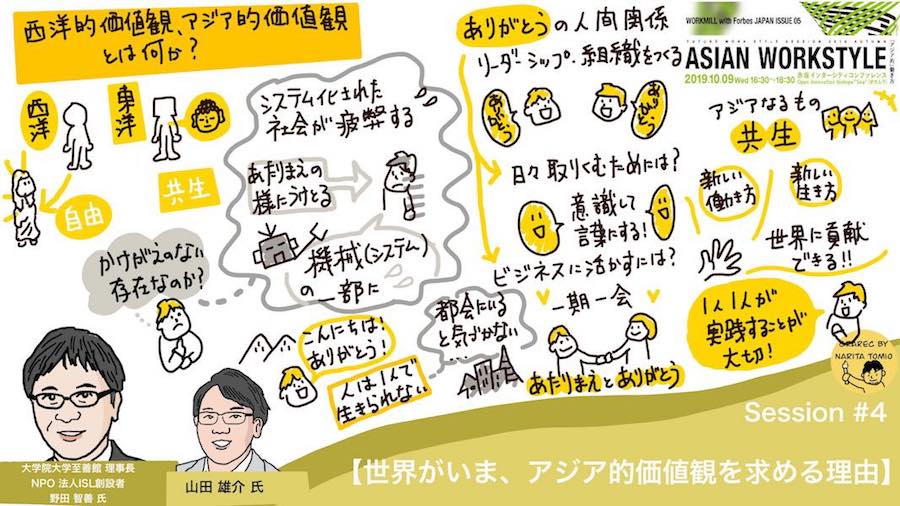 西洋的価値観、アジア的価値観
とは何か?
西洋
東洋
自由
共生
かけがえのない
存在なのか?
システム化された
社会が疲弊する
あたりまえの
様にうけとる
機械(システム)
の一部に
こんにちは!
ありがとう!
人は1人で
生きられない
都会にいる
と気づかない
...
ありがとうの人間関係
リーダーシップ、組織をつくる
ありがとう
ありがとう
日々取りくむためには?
意識して
言葉にする!
ビジネスに活かすには?
一期一会
あたりまえとありがとう
WORKMILL with Forbes JAPAN ISSUE 05
FUTURE WORK STYLE SESSION 2019 AUTUMN
ASIAN WORKSTYLE
「アジア的」働き方
2019.10.09 Wed 16:30~18:30
赤坂インターシティコンファレンス
アジアなるもの
共生
新しい
働き方
新しい
生き方
世界に貢献
できる!!
1人1人が
実践することが
大切!
GRAREC BY
NARITA TOMIO
Session #4
【世界がいま、アジア的価値観を求める理由】
大学院大学至善館 理事長
NPO 法人ISL創設者
野田 智善 氏
山田 雄介 氏